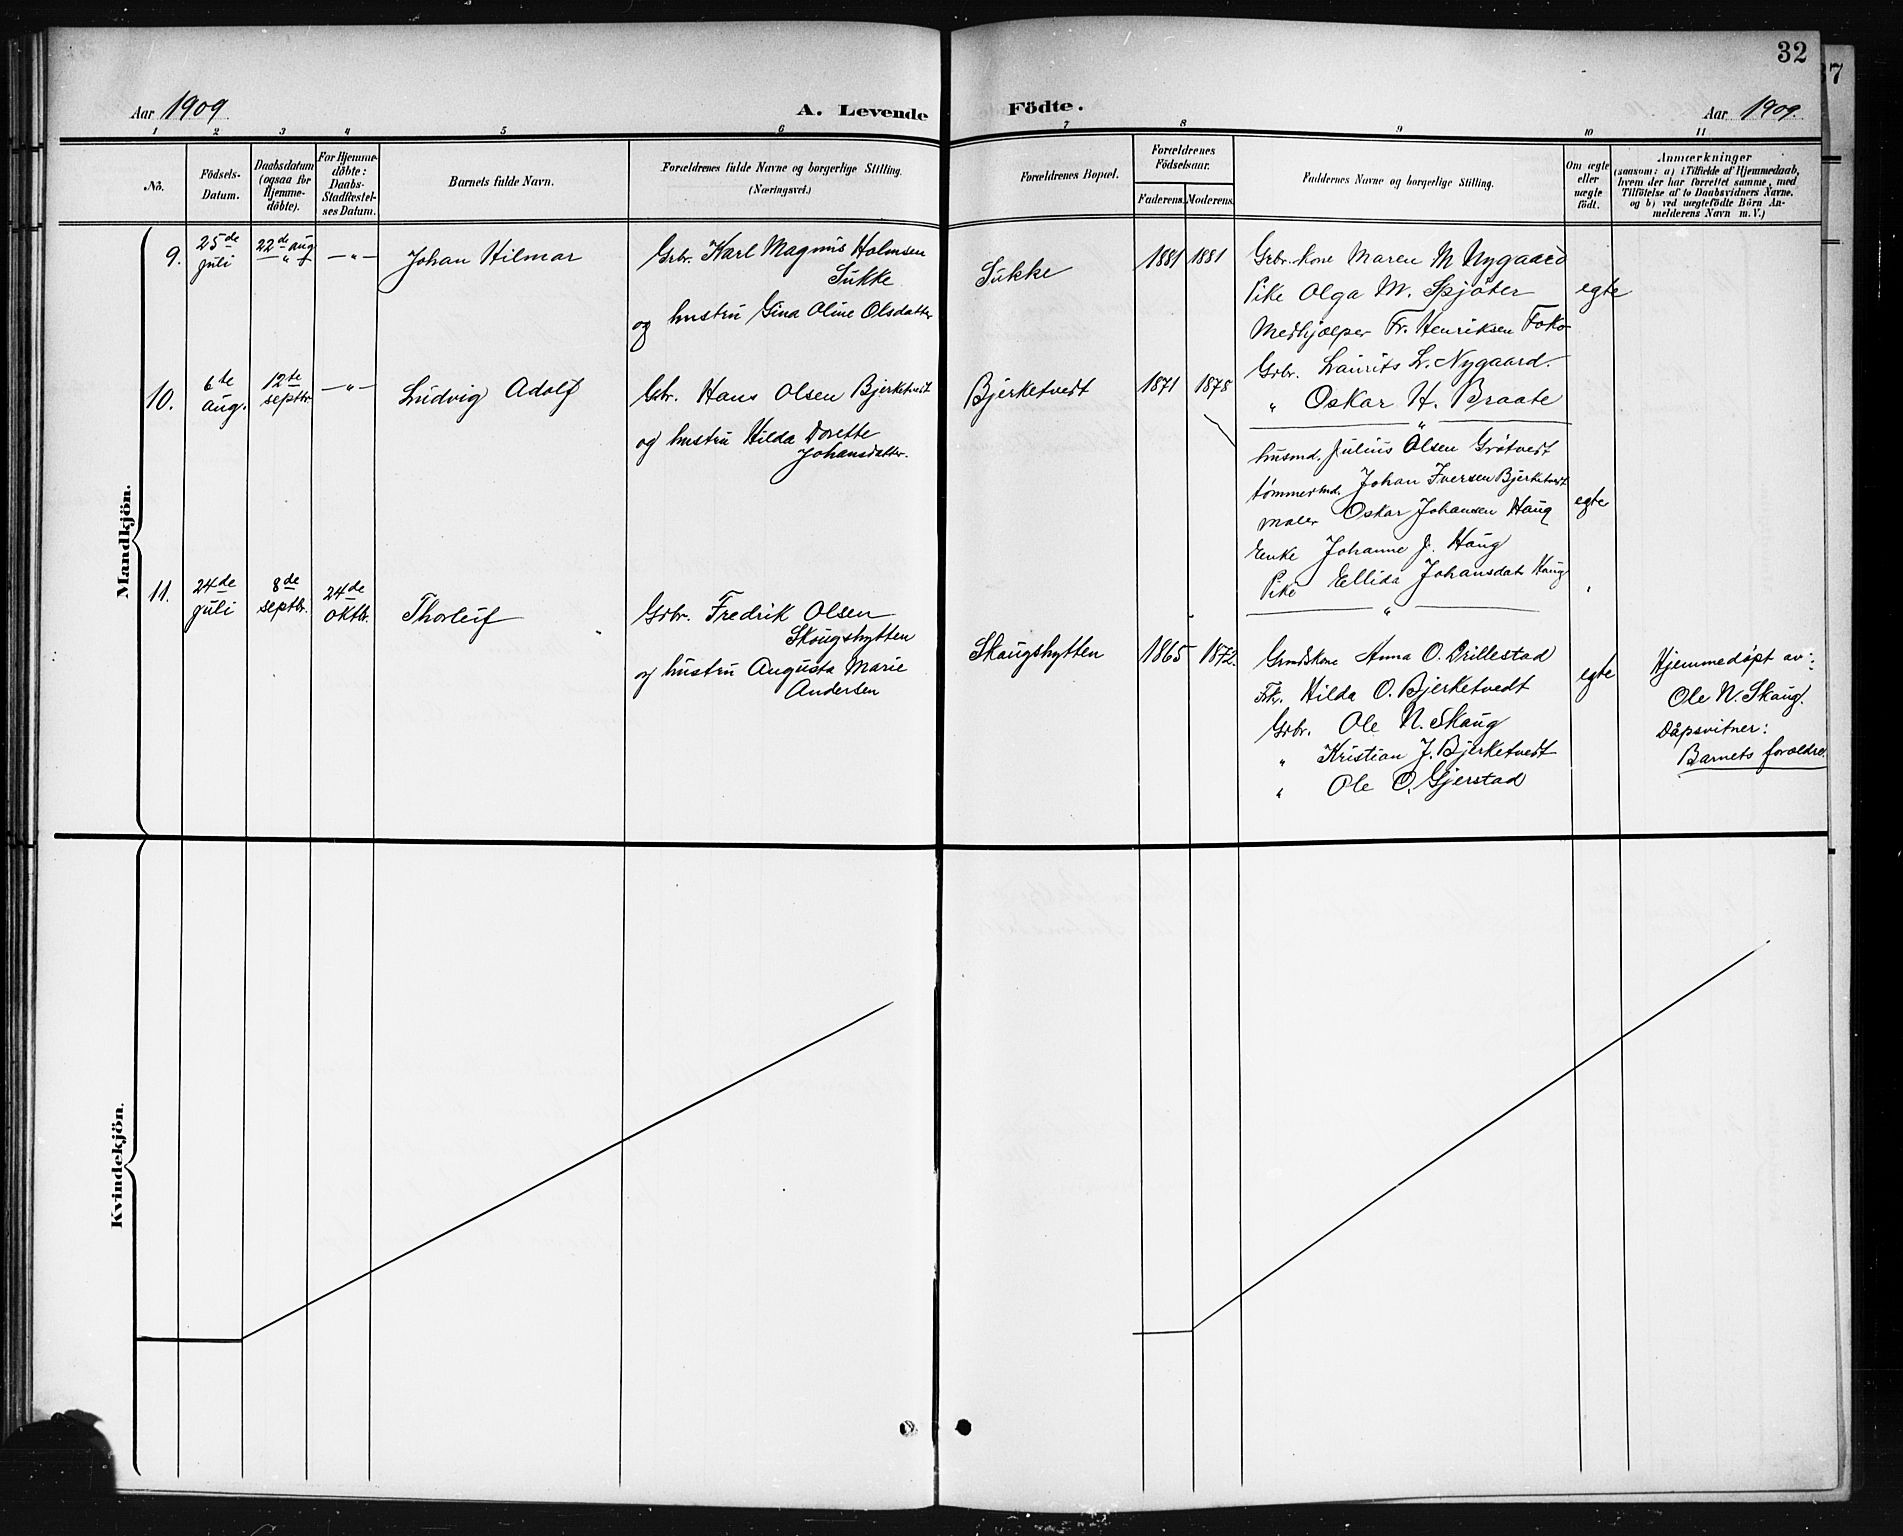 32
37
Aar 1909
A. Levende
Födte.
Aar 1909.
1 2 3 4 5 6 7 8 9 10 11
No.
Födsels-
Datum.
Daabsdatum
(ogsaa for
Hjemme-
döbte).
For Hjemme-
döbte:
Daabs-
Stadfæstel-
ses Datum.
Barnets fulde Navn.
Forældrenes fulde Navne og borgerlige Stilling.
(Næringsvei.)
Forældrenes Bopæl.
Forældrenes
Födselsaar.
Faderens.
Moderens.
Faddernes Navne og borgerlige Stilling.
Om ægte
eller
uægte
födt.
Anmærkninger
(saasom: a) i Tilfælde af Hjemmedaab,
hvem der har forrettet samme, med
Tilföielse af to Daabsvidners Navne.
og b) ved uægtefödte Börn An-
melderens Navn m. V.)
Mandkjön.
9.
25de
juli
22de aug
"
—"—
Johan Hilmar
Grbr. Karl Magnus Holmsen
Sukke
og hustru Gina Oline Olsdatter
Sukke
1881
1881
Grbr. kone Maren M Nygaard
Pike Olga M. Spjøter
Medhjælper Fr. Henriksen
Grbr. Laurits L. Nygaard.
" Oskar H. Braate
egte
"
10.
6te
aug.
12te
septbr.
—"—
Ludvig Adolf
Gbr. Hans Olsen Bjerketvedt
og hustru Hilda Dorette
Johansdatter.
Bjerketvedt
1871
1878
husmd. Julius Olsen Grøtvedt
tømmermd. Johan Iversen Bjerketvedt
maler Oskar Johansen Haug
Enke Johanne J. Haug
Pike Ellida Johansdat. Haug
egte
"
11.
24de
juli
8de
septbr.
24de
oktbr.
Thorleif
Grbr. Fredrik Olsen
Skougshytten
og hustru Augusta Marie
Andersen
Skaugshytten
1865
1872.
Grndskone Anna O. Drillestad
Frk. Hilda O. Bjerketvedt
Grbr. Ole N. Skaug
" Kristian J. Bjerketvedt
" Ole O. Gjerstad
egte
Hjemmedøpt av:
Ole N. Skaug.
Dåpsvitner:
Barnets forældre.
Kvindekjön.